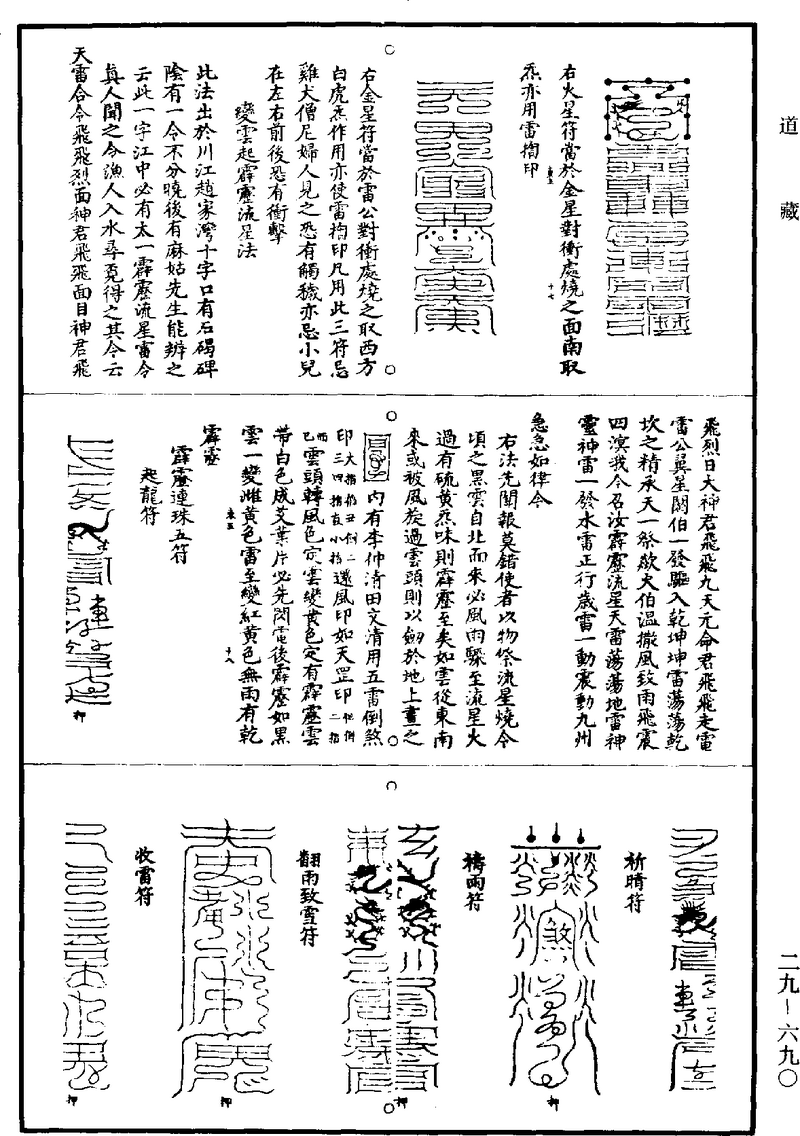 道藏
右火星符當於金星對衝處燒之面南取
炁亦用雷掐印
右金星符當於雷公對衝處燒之取西方
白虎炁作用亦使雷掐印凡用此三符忌
雞犬僧尼婦人見之恐有觸穢亦忌小兒
在左右前後恐有衝擊
變雲起霹靂流星法
此法出於川江趙家灣十字口有石碣碑
陰有一令不分曉後有麻姑先生能辨之
云此一字江中必有太一霹靂流星雷令
真人聞之令漁人入水尋覓得之其令云
天雷合令飛飛烈面神君飛飛面目神君飛
飛烈日大神君飛飛九天元命君飛飛走電
雷公翼星閼伯一發驅入乾坤坤雷蕩蕩乾
坎之精承天一祭欻火伯溫撒風致雨飛震
四溟我今召汝霹靂流星天雷蕩蕩地雷神
靈神雷一發水雷正行歲雷一動震動九州
急急如律令
右法先聞報莫錯使者以物祭流星燒令
頃之黑雲自北而來必風雨驟至流星火
過有硫黃炁味則霹靂至矣如雲從東南
來或被風旋過雲頭則以劒於地上畫之
內有李仲清田文清用五雷倒煞
印
還風印如天罡印
雲頭轉風色定雲變黃色定有霹靂雲
帶白色成艾葉片必先閃電後霹靂如黑
雲一變濰黃色雷至變紅黃色無雨有乾
霹靂
霹靂連珠五符
起龍符
押
祈晴符
押
禱雨符
押
翻雨致雪符
押
收雷符
押
二九—六九〇